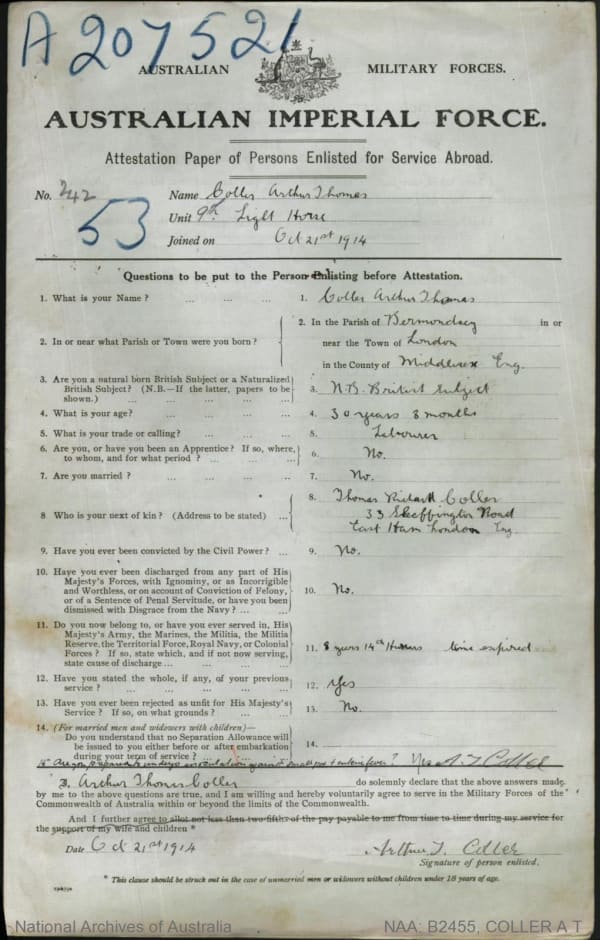 A 207521
AUSTRALIAN MILITARY FORCES.
AUSTRALIAN IMPERIAL FORCE.
Attestation Paper of Persons Enlisted for Service Abroad.
No. 242 Name Coller Arthur Thomas
53 Unit 9th Light Horse
Joined on Oct 21st 1914
Questions to be put to the Person Enlisting before Attestation.
1. What is your Name ? ... ... ... 1. Coller Arthur Thomas
2. In or near what Parish or Town were you born ? 2. In the Parish of Bermondsey in or
near the Town of London
in the County of Middlesex Eng.
3. Are you a natural born British Subject or a Naturalized
British Subject? (N.B.—If the latter, papers to be
shown.) ... ... ... ... 3. N.B. British Subject
4. What is your age? ... ... ... 4. 30 years 8 months
5. What is your trade or calling? ... ... 5. Labourer
6. Are you, or have you been an Apprentice? If so, where,
to whom, and for what period ? ... ... 6. No.
7. Are you married ? ... ... ... 7. No.
8 Who is your next of kin ? (Address to be stated) ... 8. Thomas Richard Coller
33 Skeffington Road
East Ham London Eng
9. Have you ever been convicted by the Civil Power? ... 9. No.
10. Have you ever been discharged from any part of His
Majesty's Forces, with Ignominy, or as Incorrigible
and Worthless, or on account of Conviction of Felony,
or of a Sentence of Penal Servitude, or have you been
dismissed with Disgrace from the Navy? ... ... 10. No.
11. Do you now belong to, or have you ever served in, His
Majesty's Army, the Marines, the Militia, the Militia
Reserve, the Territorial Force, Royal Navy, or Colonial
Forces ? If so, state which, and if not now serving,
state cause of discharge ... ... ... 11. 8 years 14th Hussars time expired
12. Have you stated the whole, if any, of your previous
service ? ... ... ... ... 12. Yes
13. Have you ever been rejected as unfit for His Majesty's
Service ? If so, on what grounds ? ... ... 13. No.
14. (For married men and widowers with children)—
Do you understand that no Separation Allowance will
be issued to you either before or after embarkation
during your term of service ? ... 14.
15 Are you prepared to undergo inoculation against small pox & enteric fever? Yes A T Coller
I, Arthur Thomas Coller do solemnly declare that the above answers made
by me to the above questions are true, and I am willing and hereby voluntarily agree to serve in the Military Forces of the
Commonwealth of Australia within or beyond the limits of the Commonwealth.
And I further agree to allot not less than two-fifths of the pay payable to me from time to time during my service for
the support of my wife and children *
Date Oct 21st 1914 Arthur T. Coller
Signature of person enlisted.
* This clause should be struck out in the case of unmarried men or widowers without children under 18 years of age.
National Archives of Australia NAA: B2455, COLLER A T